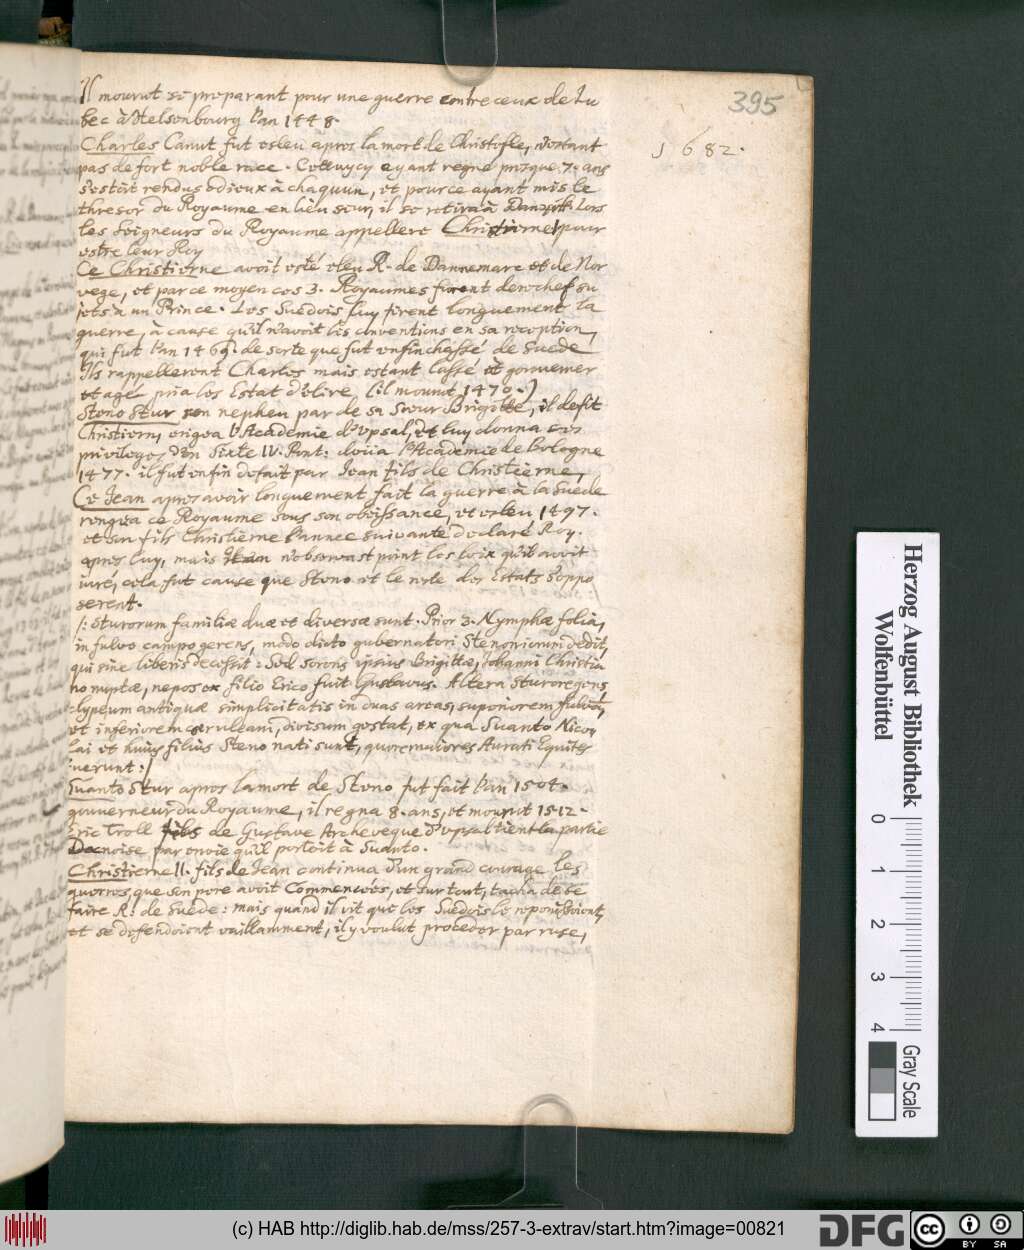 395
1682.
Il mourut se preparant pour une guerre contre ceux de Lu
bec à Helsenbourg l'an 1448.
Charles Canut fut esleu apres la mort de Christofle, n'estant
pas de fort noble race. Cettuycy ayant regné presque 7. ans
s'estoit rendus odieux à chaquun, et pource ayant mis le
thresor du Royaume en lieu seur, il se retira à Danzik. Lors
les seigneurs du Royaume appellere Christierne pour
estre leur Roy
Ce Christierne avoit esté eleu R. de Dannemarc et de Nor
vege, et par ce moyen ces 3. Royaumes furent derechef su
jets à un Prince. Les Suedois luy firent longuement la
guerre, à cause qu'il n'avoit les conventions en sa reception,
qui fut l'an 1469. de sorte que fut enfin chassé de Suede
Ils rappellerent Charles mais estant lassé et gouverner
et agé, pria les Estat d'elire (il mourut 1470.)
Steno Stur son nepheu par de sa Soeur Brigitte, il defit
Christiern, erigea l'Academie d'Upsal, et luy donna ses
privileges d'en Sixte IV. Pont: doüa l'Academie de Bologne
1477. il fut enfin defait par Jean fils de Christierne,
Ce Jean apres avoir longuement fait la guerre à la Suede
rengea ce Royaume sous son obeissance, et esleu 1497.
et son fils Christierne l'annee suivante declaré Roy.
apres luy, mais Jean n'observast point les loix qu'il avoit
juré, cela fut cause que Steno et le reste des Estats s'oppo
serent.
/: Sturorum familiæ duæ et diversæ sunt. Prior 3. Nymphæ folia,
in fulvo campo gerens, modo dicto gubernatori Stenoni dedit,
qui sine liberis decessit: Sed sororis ipsius Brigittæ, Johanni Christier
no nuptæ, nepos ex filio Erico fuit Gustavus. Altera Sturorum gens
clypeum antiquæ simplicitatis in duas areas, superiorem fulvam,
et inferiorem cæruleam, divisum gestat, ex qua Suanto Nico
lai et huius filius Steno nati sunt, quorum maiores Aurati Equites
fuerunt:/
Suanto Stur apres la mort de Steno fut fait l'an 1504.
gouverneur du Royaume, il regna 8. ans, et mourut 1512.
Eric Trolle fils de Gustave Archeveque d'Upsal tient la partie
Danoise par envie qu'il portoit à Suanto.
Christierne II. fils de Jean continua d'un grand courage les
guerres, que son pere avoit commencées, et sur tout, tacha de se
faire R: de Suede: mais quand il vit que les Suedois le repoussoient,
et se defendoient vaillamment, il y voulut proceder par ruse,
Herzog August Bibliothek
Wolfenbüttel
0 1 2 3 4
Gray Scale
(c) HAB http://diglib.hab.de/mss/257-3-extrav/start.htm?image=00821
DFG
cc BY SA